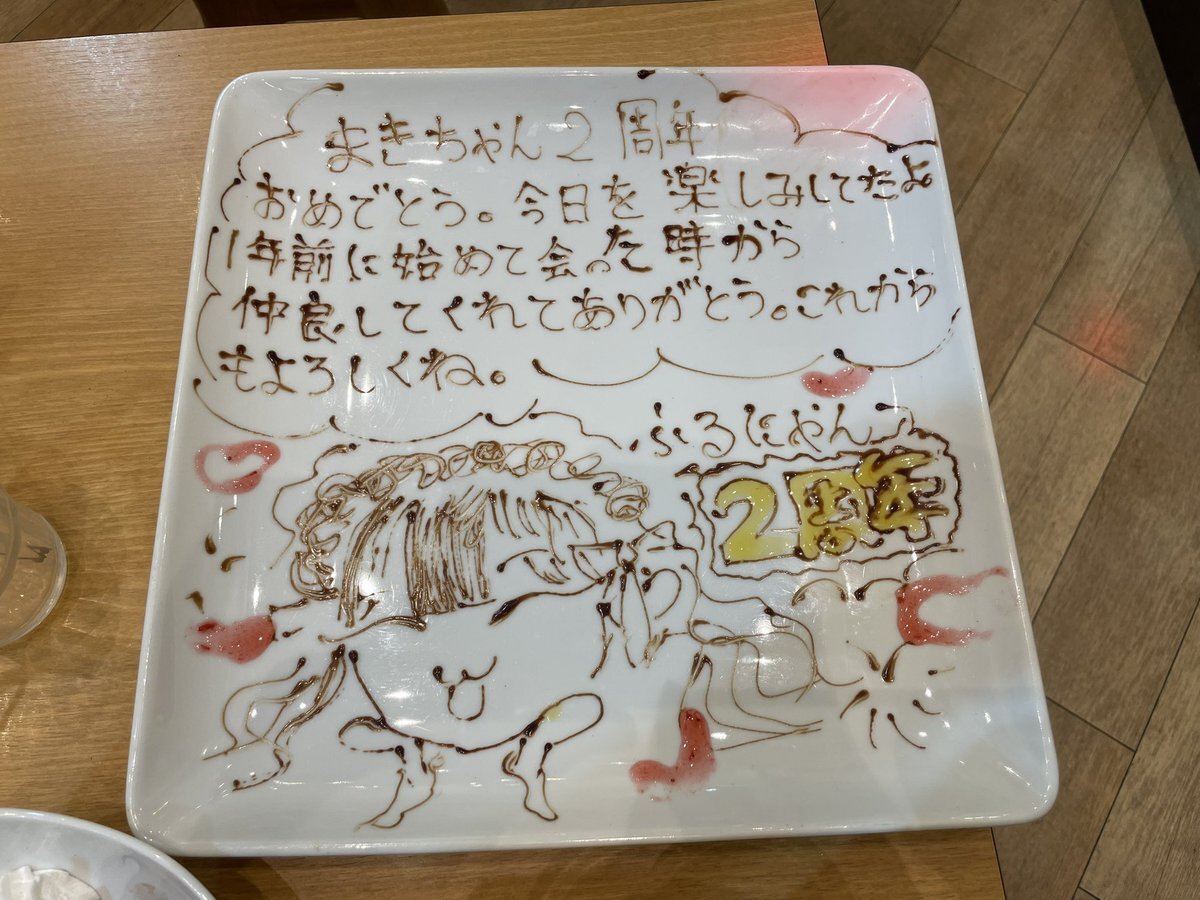 まきちゃん2周年
おめでとう。今日を楽しみしてたよ
1年前に始めて会った時から
仲良してくれてありがとう。これから
もよろしくね。
ふるにゃん
2周年